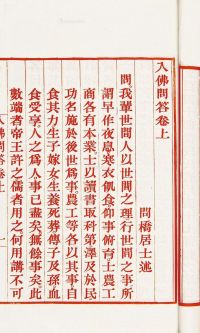 入佛問答卷上
問橋居士述
問我輩世間人以世間之理行世間之事所
謂早作夜息寒衣飢食仰事俯育士農工
商各有本業士以讀書取科第澤及於民
功名施於後世爲事農工等各以其事自
食其力生子嫁女生養死葬傳子及孫血
食受享人之爲人事已盡矣無餘事矣此
數端者帝王許之儒者用之何用講不可
入佛問答卷上 一